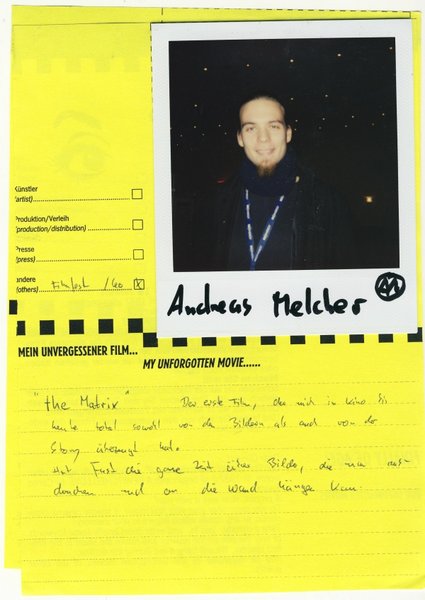 Künstler
(artist)
Produktion/Verleih
(production/distribution)
Presse
(press)
andere
(others) Filmfest / Leo X
Andreas Melcher M
MEIN UNVERGESSENER FILM...
MY UNFORGOTTEN MOVIE......
"the Matrix" Der erste Film, der mich im Kino bis
heute total sowohl von den Bildern als auch von der
Story überzeugt hat.
Hat Fast die ganze Zeit Bilder, die man aus-
drucken und an die Wand hängen kann.